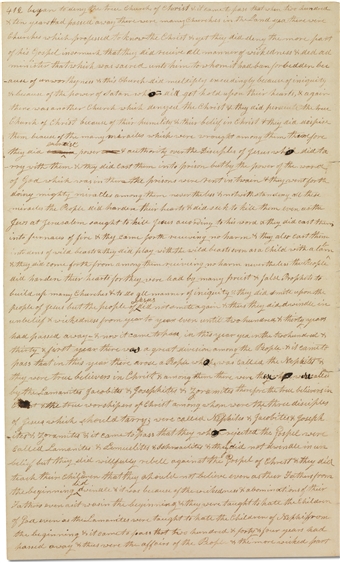 412 began to deny the true Church of Christ & it came to pass that when two hundred
& ten years had passed away there were many Churches in the land yea there were
Churches which professed to know the Christ & yet they did deny the more part
of his Gospel insomuch that they did receive all manner of wickedness & did ad
minister that which was sacred unto him to whom it had been forbidden bec
ause of unworthyness & this Church did multiply exceedingly because of iniquity
& because of the power of Satan who did get hold upon their hearts & again
there was another Church which denyed the Christ & they did persecute the true
Church of Christ because of their humility & their belief in Christ & they did despise
them because of the many miracles which were wrought among them therefore
they did power & authority over the Disciples of Jesus who did tar
ry with them & they did cast them into prison but by the power of the word
of God which was in them the prisons were rent in twain & they went forth
doing mighty miracles among them nevertheless & notwithstanding all these
miracles the People did harden their hearts & did seek to kill them even as the
Jews at Jerusalem sought to kill Jesus according to his word & they did cast them
into furnaces of fire & they came forth receiving no harm & they also cast them
into dens of wild beasts & they did play with the wild beasts even as a Child with a lamb
& they did come forth from among them receiving no harm nevertheless the People
did harden their hearts for they were led by many priests & false Prophets to
build up many Churches & to do all manner of iniquity & they did smite upon the
people of Jesus but the people of Jesus did not smite again & thus they did dwindle in
unbelief & wickedness from year to year even until two hundred & thirty years
had passed away & now it came to pass in this year yea in the two hundred &
thirty & first year there was a great division among the People & it came to
pass that in this year there arose a People who were called the Nephites &
they were true believers in Christ & among them there were
by the Lamanites Jacobites & Josephites & Zoramites therefore the true believers in
Christ & the true worshipers of Christ among whom were the three disciples
of Jesus which should tarry were called Nephites & Jacobites & Joseph
ites & Zoramites & it came to pass that they who rejected the Gospel were
called Lamanites & Lemuelites & Ishmaelites & they did not dwindle in un
belief but they did willfully rebell against the Gospel of Christ & they did
teach their Children that they should not believe even as their Fathers from
the beginning did dwindle & it was because of the wickedness & abominations of their
Fathers even as it was in the beginning & they were taught to hate the Children
of God even as the Lamanites were taught to hate the Children of Nephi from
the beginning & it came to pass that two hundred & forty & four years had
passed away & thus were the affairs of the People & the more wicked part